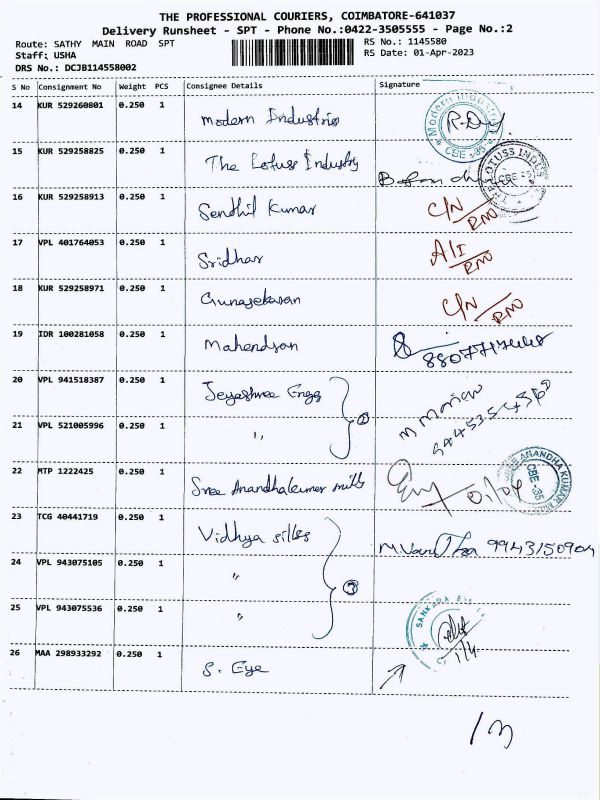 THE PROFESSIONAL COURIERS, COIMBATORE-641037
Delivery Runsheet - SPT - Phone No.:0422-3505555 - Page No.:2
Route: SATHY MAIN ROAD SPT
RS No.: 1145580
Staff: USHA
RS Date: 01-Apr-2023
DRS No.: DCJB114558002
S No Consignment No Weight PCS Consignee Details Signature
14 KUR 529260801 0.250 1 Modern Industries
15 KUR 529258825 0.250 1 The Lotuss Industry
16 KUR 529258913 0.250 1 Sendhil Kumar C/N RNO
17 VPL 401764053 0.250 1 Sridhar A/I RNO
18 KUR 529258971 0.250 1 Gunasekaran C/N RNO
19 IDR 100281058 0.250 1 Mahendran
20 VPL 941518387 0.250 1 Jeyashree Engg
21 VPL 521005996 0.250 1 "
22 MTP 1222425 0.250 1 Sree Anandhakumar mills
23 TCG 40441719 0.250 1 Vidhya silks 9943150904
24 VPL 943075105 0.250 1 "
3
25 VPL 943075536 0.250 1 "
26 MAA 298933292 0.250 1 S. Eye
/13